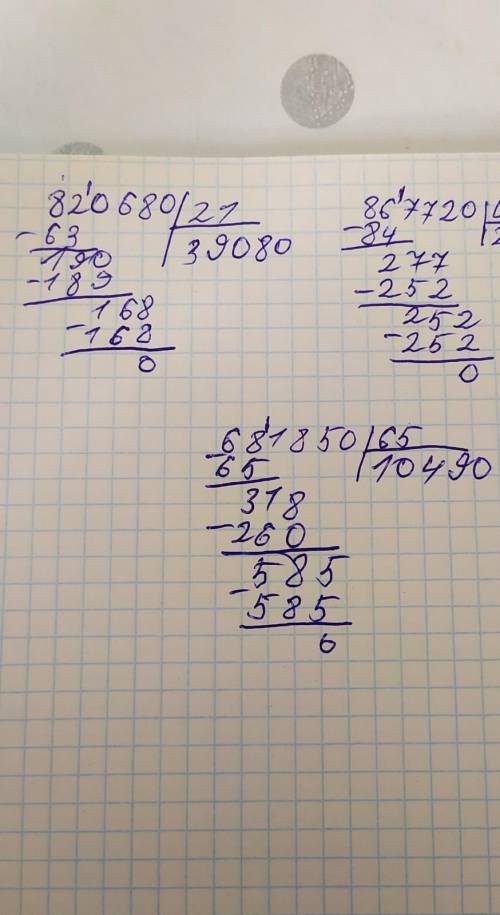 820680 | 21
-63 | 39080
190
-189
168
-168
0
867720
-84 | 2
277
-252
252
-252
0
681850 | 65
-65 | 10490
318
-260
585
-585
0